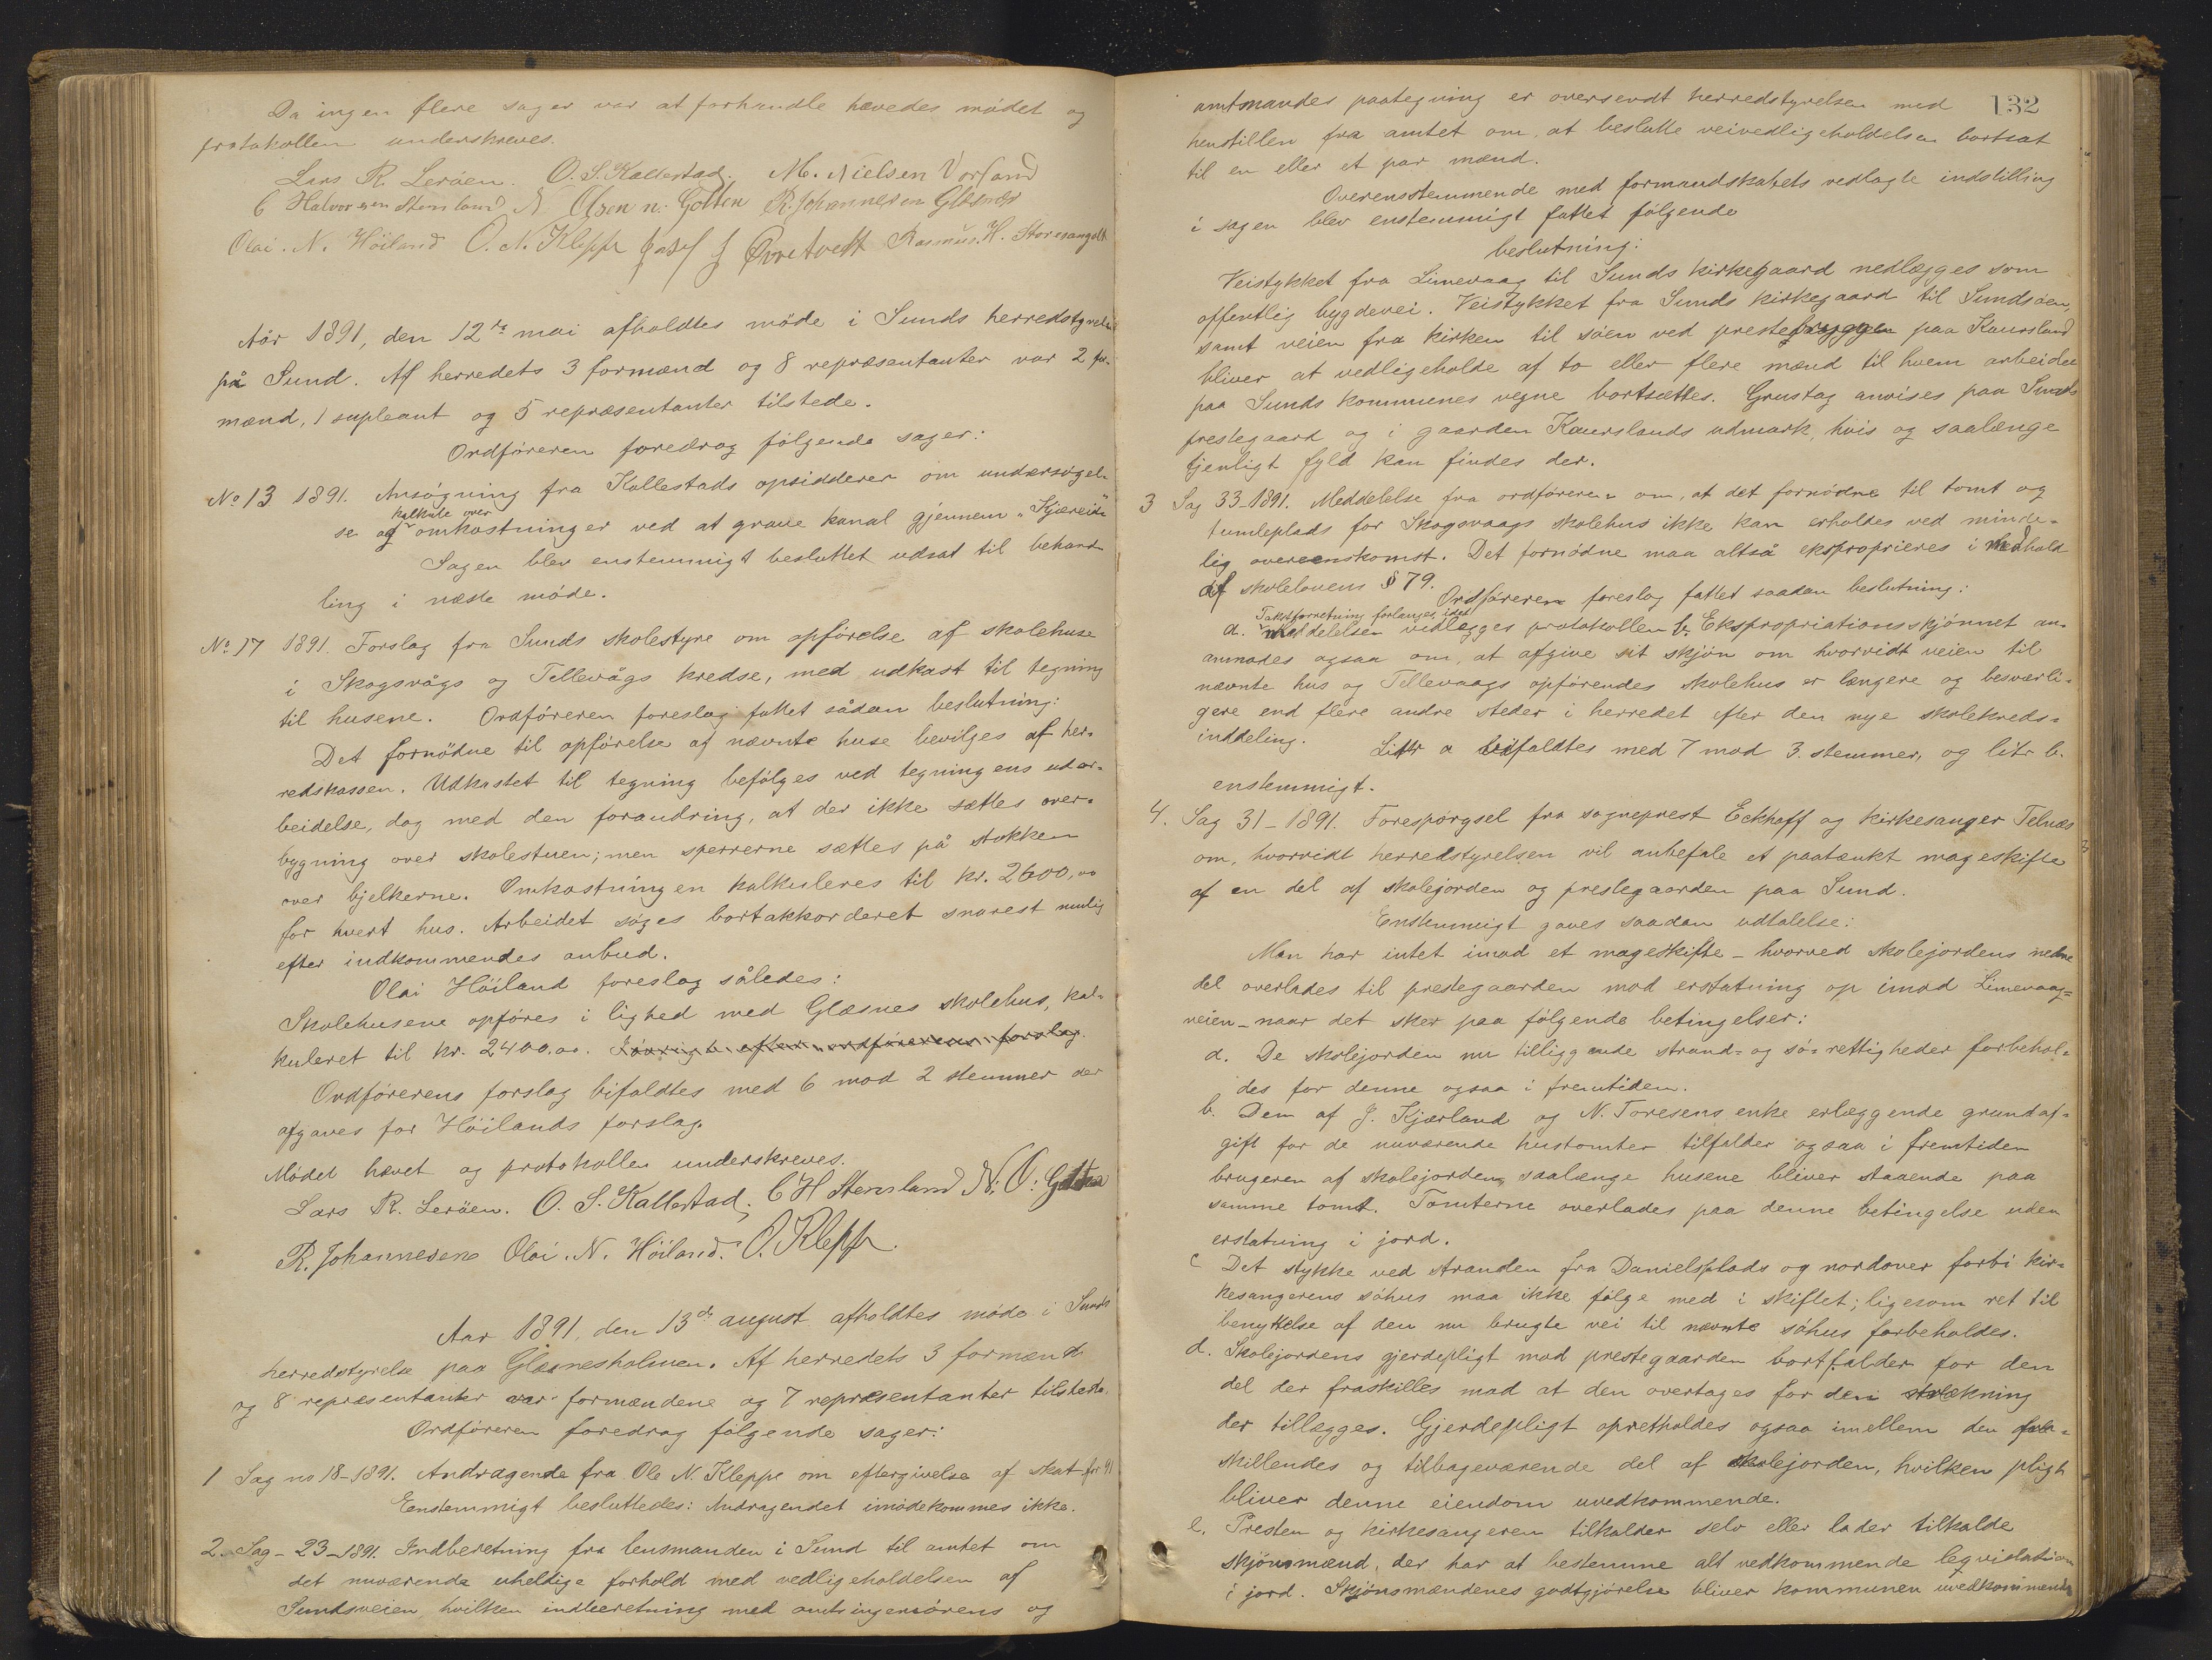 Da ingen flere sager var at forhandle hævedes mödet og
protokollen underskreves.
Lars R. Leröen. O. S. Kallestad. M. Nielsen Vorland
C Halvorsen Stensland N Olsen n. Golten R. Johannesen Glesnes
Olai. N. Höiland O. N. Kleppe Josef J Övretvedt Rasmus. H. Storesangolt
Aar 1891, den 12te mai afholdtes möde i Sunds herredstyrelse
på Sund. Af herredets 3 formænd og 8 repræsentanter var 2 for-
mænd, 1 supleant og 5 repræsentanter tilstede.
Ordföreren foredrog fölgende sager:
No 13 1891. Ansögning fra Kallestads opsidderer om undersögel-
kalkule over
se og omkostninger ved at grave kanal gjennem "Kjæreid"
Sagen blev enstemmigt besluttet udsat til behand-
ling i næste möde.
No 17 1891. Forslag fra Sunds skolestyre om opförelse af skolehuse
i Skogsvågs og Tellevågs kredse, med udkast til tegning
til husene. Ordföreren foreslog fattet sådan beslutning:
Det fornödne til opförelse af nævnte huse bevilges af her-
redskassen. Udkastet til tegning befölges ved tegningens udar-
beidelse, dog med den forandring, at der ikke sættes over-
bygning over skolestuen; men sperrerne sættes på stokken
over bjelkerne. Omkostningen kalkuleres til kr. 2600,00
for hvert hus. Arbeidet söges bortakkorderet snarest mulig
efter indkommendes anbud.
Olai Höiland foreslog således:
Skolehusene opföres i lighed med Glæsnes skolehus, kal-
kuleret til kr. 2400,00. Iövrigt efter ordförerens forslag.
Ordförerens forslag bifaldtes med 6 mod 2 stemmer der
afgaves for Höilands forslag.
Mödet hævet og protokollen underskreves.
Lars R. Leröen. O. S. Kallestad. C H Stensland N. O. Golten
R. Johannesen Olai. N. Höiland. O. Kleppe.
Aar 1891, den 13de august afholdtes möde i Sunds
herredstyrelse paa Glæsnesholmen. Af herredets 3 formænd
og 8 repræsentanter var formændene og 7 repræsentanter tilstede.
Ordföreren foredrog fölgende sager:
1 Sag no 18-1891. Andragende fra Ole N. Kleppe om eftergivelse af skat for 91
Eenstemmigt besluttedes: Andragendet imödekommes ikke.
2. Sag - 23-1891. Indberetning fra lensmanden i Sund til amtet om
det nuværende uheldige forhold med vedligeholdelsen af
Sundsveien, hvilken indberetning med amtsingeniörens og
132
amtmandes paategning er oversendt herredstyrelsen med
henstillen fra amtet om, at beslutte veivedligeholdelsen bortsat
til en eller et par mænd.
Overensstemmende med formandskabets vedlagte indstilling
i sagen blev enstemmigt fattet fölgende
beslutning:
Veistykket fra Limevaag til Sunds kirkegaard nedlægges som
offentlig bygdevei. Veistykket fra Sunds kirkegaard til Sundsöen,
samt veien fra kirken til söen ved prestebryggen paa Kausland
bliver at vedligeholde af to eller flere mænd til hvem arbeidet
paa Sunds kommunes vegne bortsættes. Grustag anvises paa Sunds
prestegaard og i gaarden Kauslands udmark, hvis og saalænge
tjenligt fyld kan findes der.
3 Sag 33-1891. Meddelelse fra ordföreren om, at det fornödne til tomt og
tumleplads for Skogsvaags skolehus ikke kan erholdes ved minde-
lig overeenskomst. Det fornödne maa altså eksproprieres i medhold
af skolelovens § 79. Ordföreren foreslog fattet saadan beslutning:
Takstforretning forlanges, idet
a. meddelelsen vedlægges protokollen b. Ekspropriationsskjönnet an-
anmodes ogsaa om, at afgive sit skjön om hvorvidt veien til
nævnte hus og Tellevaags opförendes skolehus er længere og besværli-
gere end flere andre steder i herredet efter den nye skolekreds-
inddeling. Littr a bifaldtes med 7 mod 3 stemmer, og litr b.
enstemmigt.
4. Sag 31-1891. Forespörgsel fra sogneprest Eckhoff og kirkesanger Telnæs
om, hvorvidt herredstyrelsen vil anbefale et paatænkt mageskifte
af en del af skolejorden og prestegaarden paa Sund.
Enstemmigt gaves saadan udtalelse:
Man har intet imod et mageskifte - hvorved skolejordens nedre
del overlades til prestegaarden mod erstatning op imod Limevaag-
veien - naar det sker paa fölgende betingelser:
a. De skolejorden nu tilliggende strand- og sö-rettigheder forbehol-
des for denne ogsaa i fremtiden.
b. Den af J. Kjærland og N. Toresens enke erlæggende grundaf-
gift for de nuværende hustomter tilfalder ogsaa i fremtiden
brugeren af skolejorden, saalænge husene bliver staaende paa
samme tomt. Tomterne overlades paa denne betingelse uden
erstatning i jord.
c Det stykke ved stranden fra Danielsplads og nordover forbi kir-
kesangerens söhus maa ikke fölge med i skiftet; ligesom ret til
benyttelse af den nu brugte vei til nævnte söhus forbeholdes.
d. Skolejordens gjerdepligt mod prestegaarden bortfalder for den
del der fraskilles mod at den overtages for den strækning
der tillægges. Gjerdepligt opretholdes ogsaa imellem den fra-
skillendes og tilbageværende del af skolejorden, hvilken pligt
bliver denne eiendom uvedkommende.
e. Presten og kirkesangeren tilkalder selv eller lader tilkalde
skjönsmænd, der har at bestemme alt vedkommende leqvidation
i jord. Skjönsmændenes godtgjörelse bliver kommunen uvedkommende